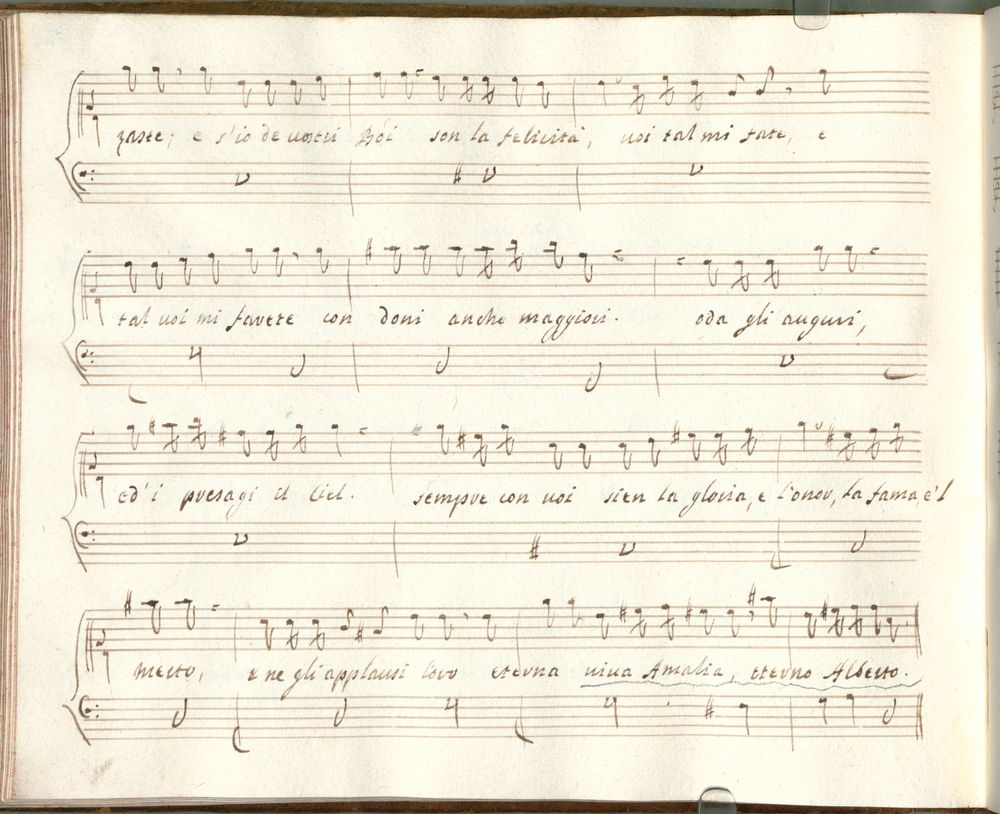 zaste; e s'io de vostri Boi son la felicità, voi tal mi fate, e
tal voi mi favete con doni anche maggiori. oda gli auguri,
ed'i presagi il Ciel. sempre con voi sien la gloria, e l'onor, la fama, e'l
merto, e ne gli applausi loro eterna viva Amalia, eterno Alberto.